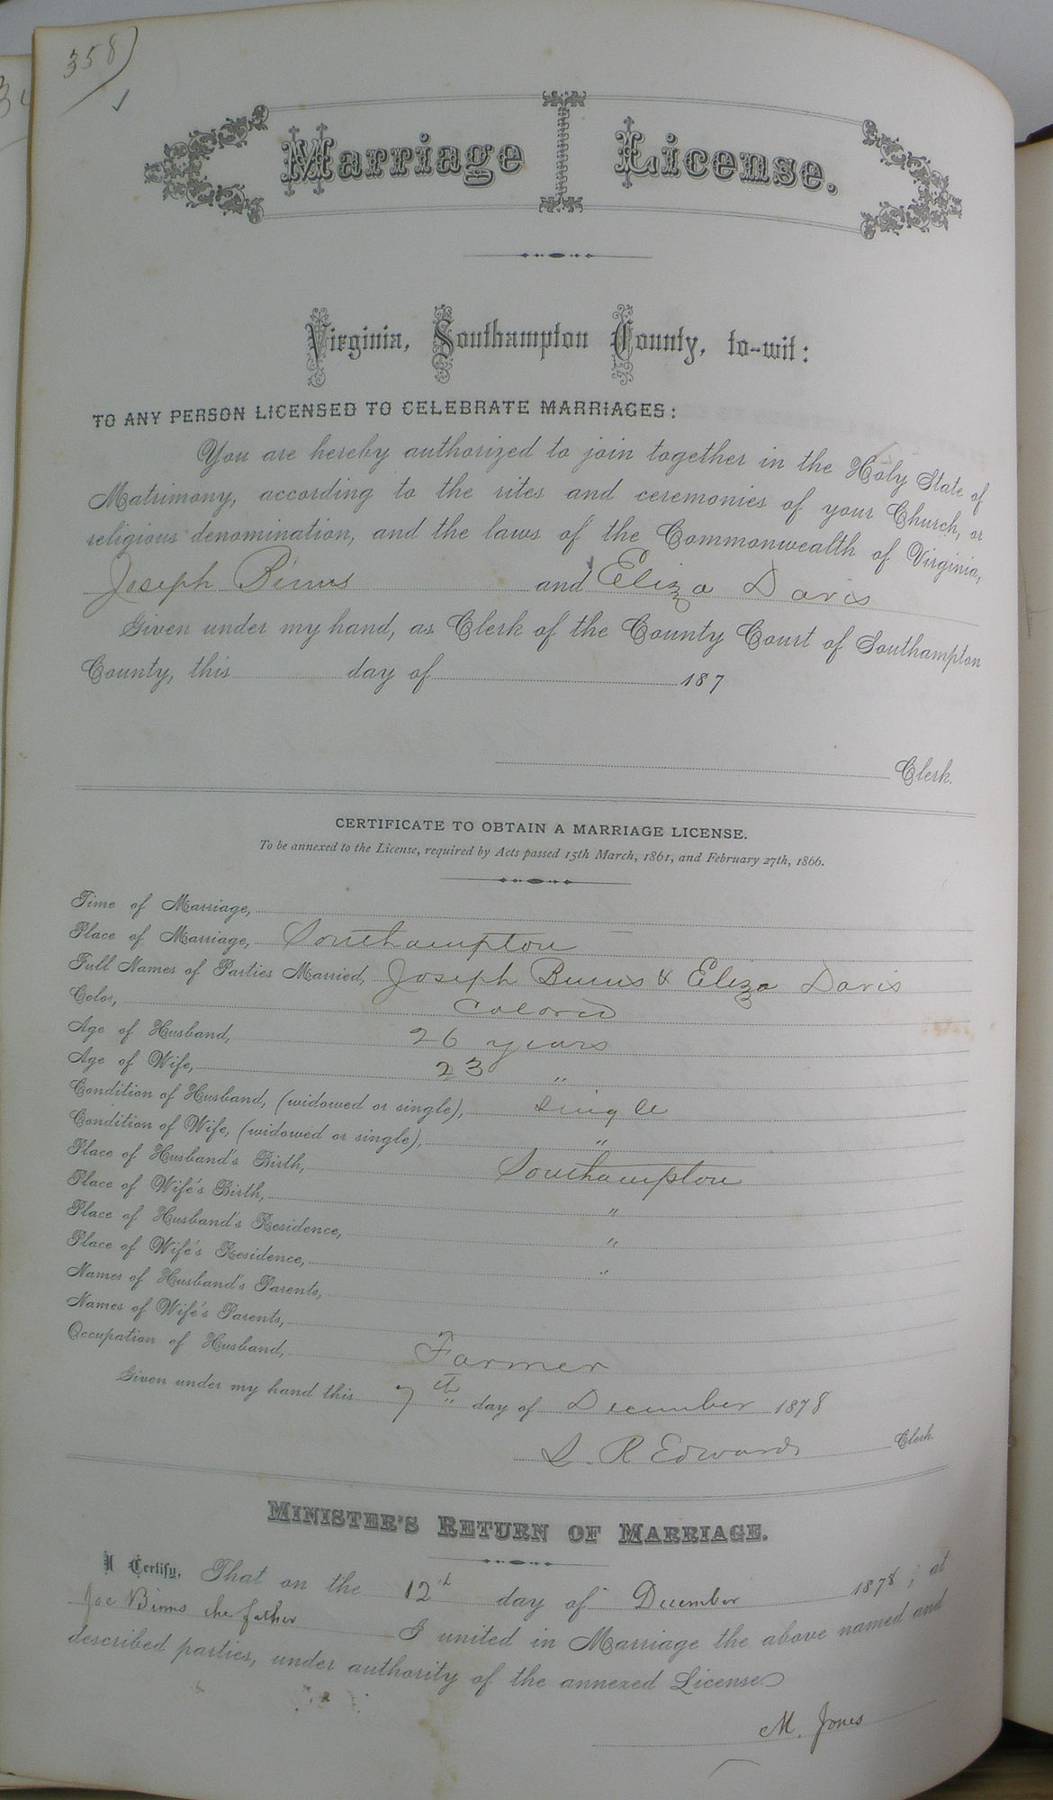 358)
Marriage License.
Virginia, Southampton County, to-wit:
TO ANY PERSON LICENSED TO CELEBRATE MARRIAGES:
You are hereby authorized to join together in the Holy State of
Matrimony, according to the rites and ceremonies of your Church, or
religious denomination, and the laws of the Commonwealth of Virginia,
Joseph Binns and Eliza Davis
Given under my hand, as Clerk of the County Court of Southampton
County, this day of 187
Clerk.
CERTIFICATE TO OBTAIN A MARRIAGE LICENSE.
To be annexed to the License, required by Acts passed 15th March, 1861, and February 27th, 1866.
Time of Marriage,
Place of Marriage, Southampton
Full Names of Parties Married, Joseph Binns & Eliza Davis
Color, Colored
Age of Husband, 26 years
Age of Wife, 23 "
Condition of Husband, (widowed or single), Single
Condition of Wife, (widowed or single), "
Place of Husband's Birth, Southampton
Place of Wife's Birth, "
Place of Husband's Residence, "
Place of Wife's Residence, "
Names of Husband's Parents,
Names of Wife's Parents,
Occupation of Husband, Farmer
Given under my hand this 7th day of December 1878
L. R Edwards Clerk.
MINISTER'S RETURN OF MARRIAGE.
I Certify, That on the 12th day of December 1878; at
Joe Binns the father I united in Marriage the above named and
described parties, under authority of the annexed License
M. Jones